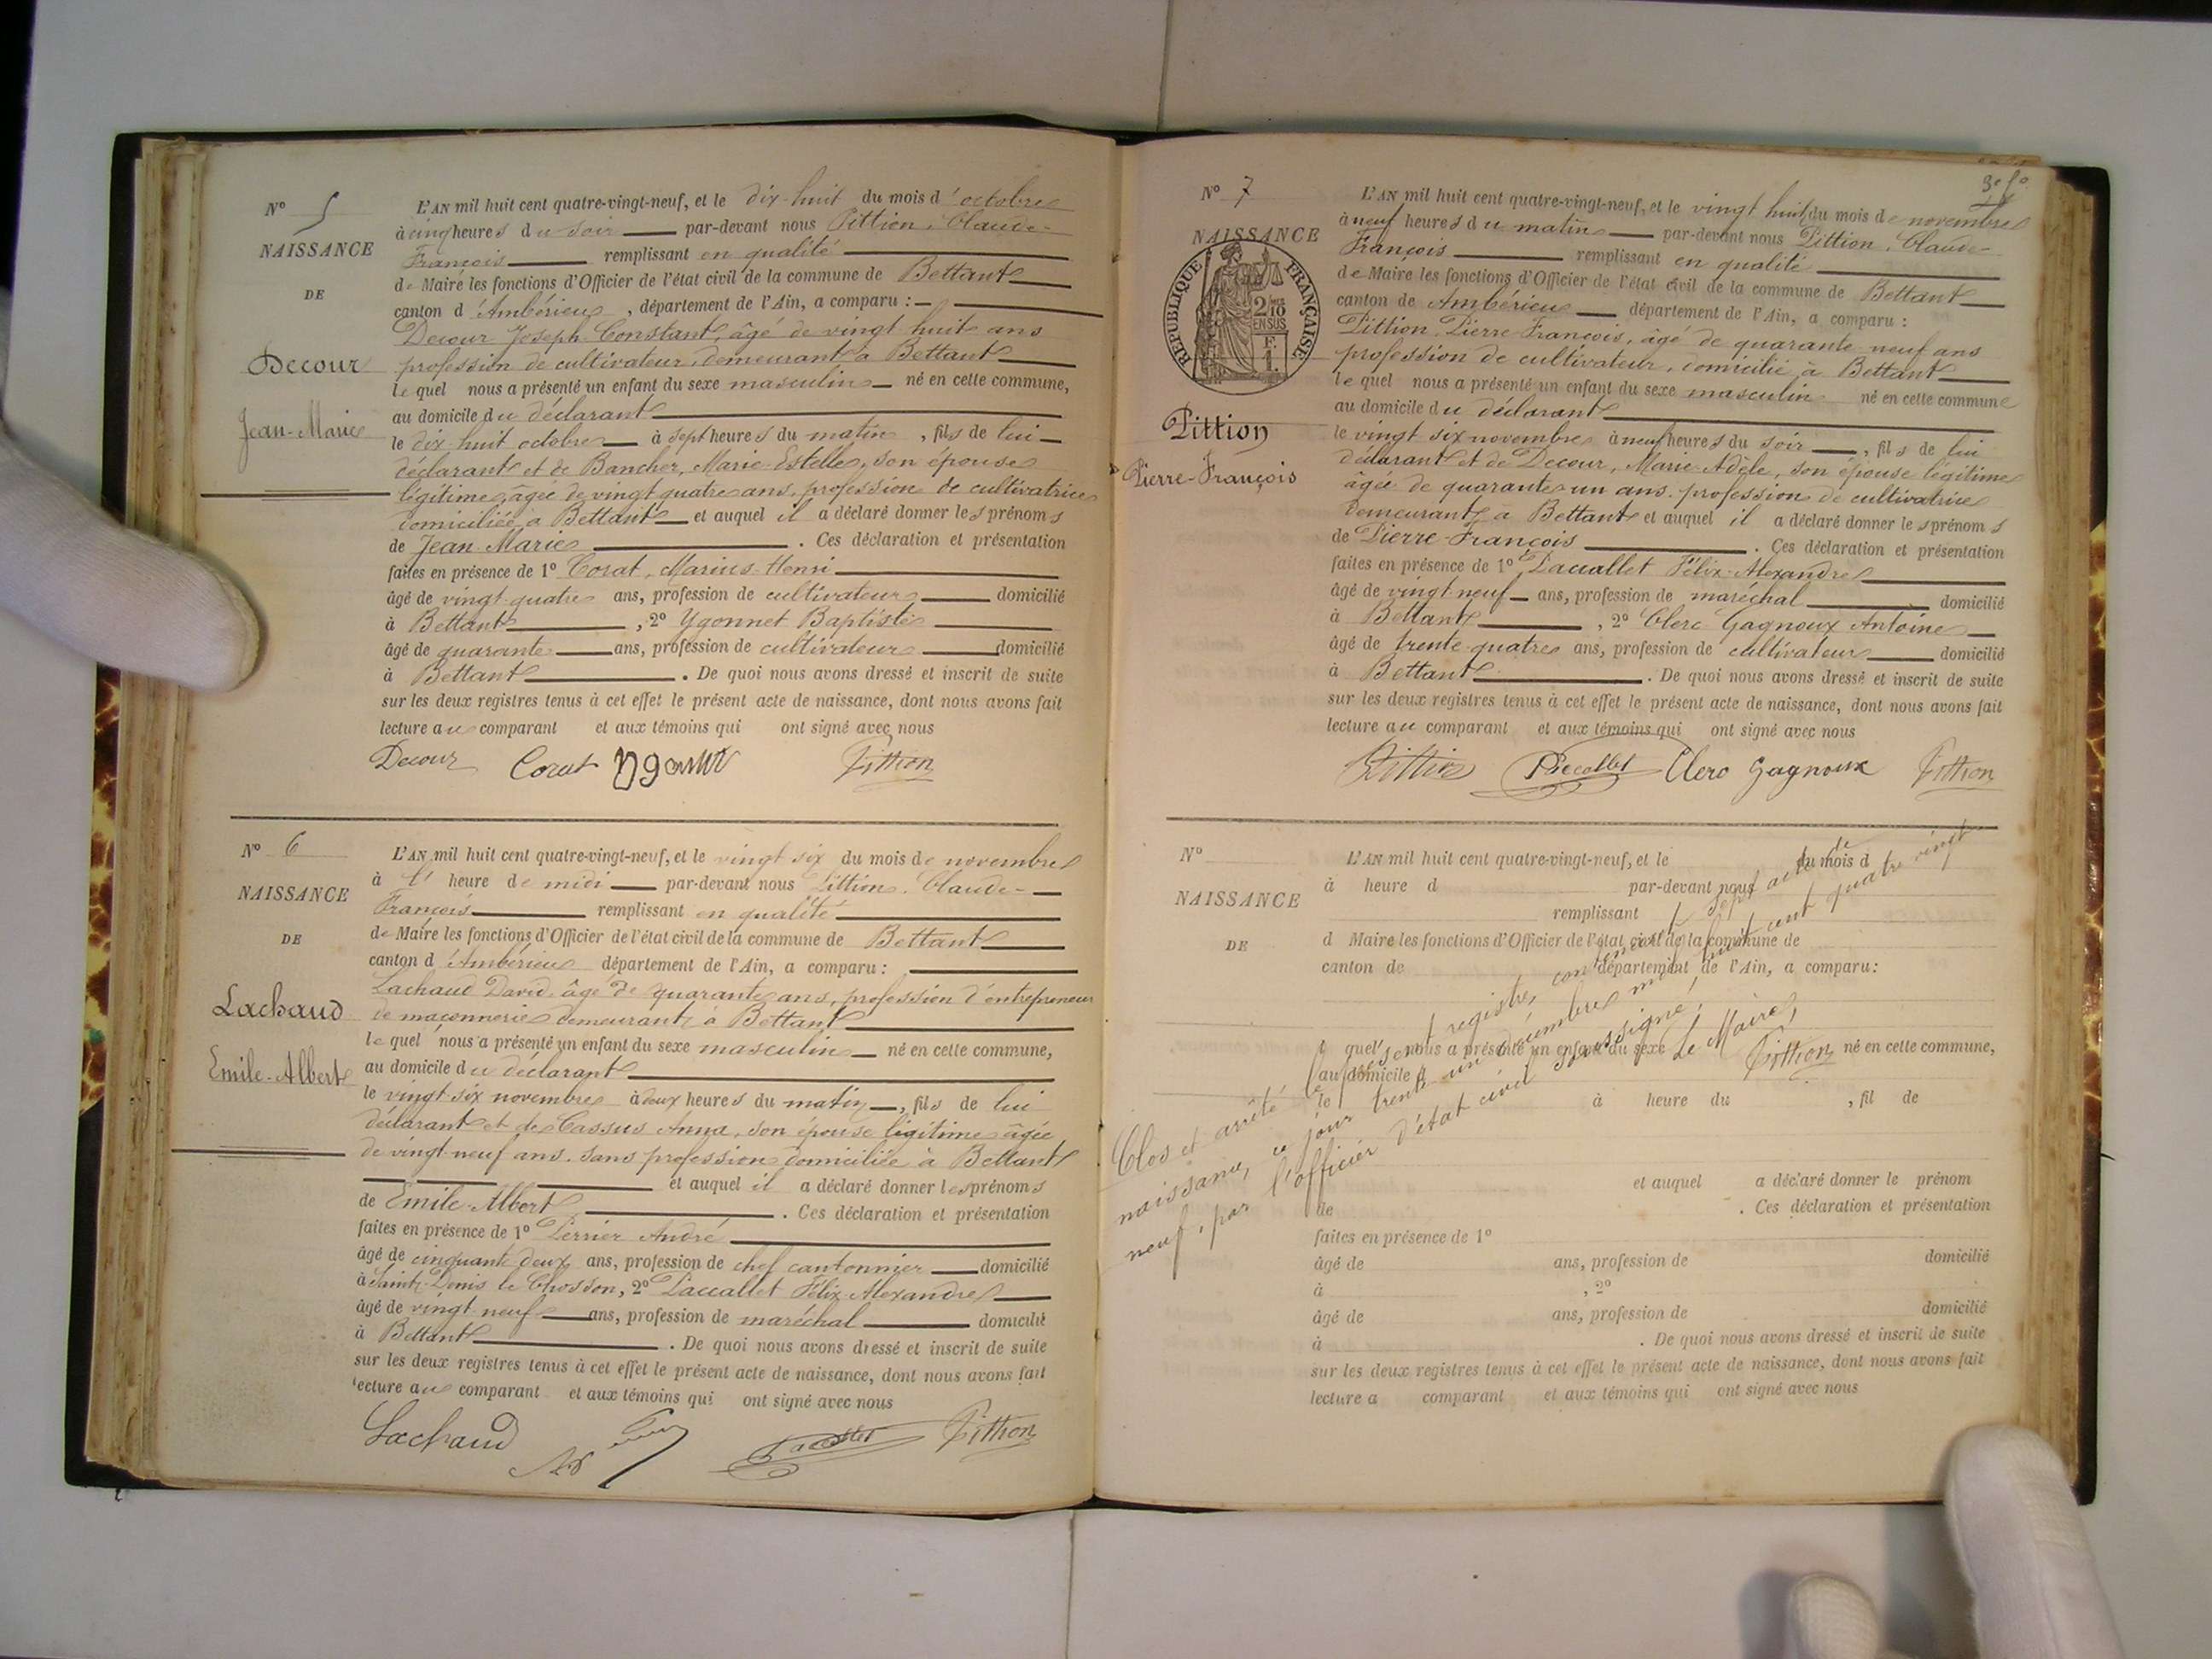 N° 5
NAISSANCE
DE
Decour
Jean-Marie
L'AN mil huit cent quatre-vingt-neuf, et le dix-huit du mois d'octobre
à cinq heures du soir par-devant nous Pittion, Claude-
François remplissant en qualité
de Maire les fonctions d'Officier de l'état civil de la commune de Bettant
canton d'Ambérieu, département de l'Ain, a comparu :
Decour Joseph Constant, âgé de vingt huit ans
profession de cultivateur, demeurant à Bettant
lequel nous a présenté un enfant du sexe masculin né en cette commune,
au domicile du déclarant
le dix huit octobre à sept heures du matin, fils de lui
déclarant et de Bancher, Marie-Estelle, son épouse
légitime, âgée de vingt quatre ans, profession de cultivatrice
domiciliée à Bettant et auquel il a déclaré donner les prénoms
de Jean-Marie. Ces déclaration et présentation
faites en présence de 1° Corat, Marius-Henri
âgé de vingt-quatre ans, profession de cultivateur domicilié
à Bettant, 2° Ygonnet Baptiste
âgé de quarante ans, profession de cultivateur domicilié
à Bettant. De quoi nous avons dressé et inscrit de suite
sur les deux registres tenus à cet effet le présent acte de naissance, dont nous avons fait
lecture au comparant et aux témoins qui ont signé avec nous
Decour Corat Pittion
N° 6
NAISSANCE
DE
Lachaud
Emile-Albert
L'AN mil huit cent quatre-vingt-neuf, et le vingt six du mois de novembre
à l' heure de midi par-devant nous Pittion, Claude-
François remplissant en qualité
de Maire les fonctions d'Officier de l'état civil de la commune de Bettant
canton d'Ambérieu département de l'Ain, a comparu :
Lachaud David, âgé de quarante ans, profession d'entrepreneur
de maçonnerie demeurant à Bettant
lequel nous a présenté un enfant du sexe masculin né en cette commune,
au domicile du déclarant
le vingt-six novembre à deux heures du matin, fils de lui
déclarant et de Cassus Anna, son épouse légitime âgée
de vingt neuf ans, sans profession domiciliée à Bettant
et auquel il a déclaré donner les prénoms
de Emile-Albert. Ces déclaration et présentation
faites en présence de 1° Perrier André
âgé de cinquante deux ans, profession de chef cantonnier domicilié
à Saint-Denis le Chosson, 2° Paccallet Félix-Alexandre
âgé de vingt neuf ans, profession de maréchal domicilié
à Bettant. De quoi nous avons dressé et inscrit de suite
sur les deux registres tenus à cet effet le présent acte de naissance, dont nous avons fait
lecture au comparant et aux témoins qui ont signé avec nous
Lachaud Paccallet Pittion
3e fo
N° 7
NAISSANCE
RÉPUBLIQUE FRANÇAISE
2/10 EN SUS
F. 1.
Pittion
Pierre-François
L'AN mil huit cent quatre-vingt-neuf, et le vingt huit du mois de novembre
à neuf heures du matin par-devant nous Pittion, Claude-
François remplissant en qualité
de Maire les fonctions d'Officier de l'état civil de la commune de Bettant
canton de Ambérieu département de l'Ain, a comparu :
Pittion Pierre-François, âgé de quarante neuf ans
profession de cultivateur, domicilié à Bettant
lequel nous a présenté un enfant du sexe masculin né en cette commune
au domicile du déclarant
le vingt six novembre à neuf heures du soir, fils de lui
déclarant et de Decour, Marie-Adèle, son épouse légitime
âgée de quarante-un ans, profession de cultivatrice
demeurant à Bettant et auquel il a déclaré donner les prénoms
de Pierre-François. Ces déclaration et présentation
faites en présence de 1° Paccallet Félix-Alexandre
âgé de vingt neuf ans, profession de maréchal domicilié
à Bettant, 2° Clerc Gagnoux Antoine
âgé de trente-quatre ans, profession de cultivateur domicilié
à Bettant. De quoi nous avons dressé et inscrit de suite
sur les deux registres tenus à cet effet le présent acte de naissance, dont nous avons fait
lecture au comparant et aux témoins qui ont signé avec nous
Pittion Paccallet Clerc Gagnoux Pittion
N°
NAISSANCE
DE
L'AN mil huit cent quatre-vingt-neuf, et le du mois d
à heure d par-devant nous
remplissant
d Maire les fonctions d'Officier de l'état civil de la commune de
canton de département de l'Ain, a comparu :
quel nous a présenté un enfant du sexe né en cette commune,
au domicile d
le à heure du, fil de
et auquel a déclaré donner le prénom
de. Ces déclaration et présentation
faites en présence de 1°
âgé de ans, profession de domicilié
à, 2°
âgé de ans, profession de domicilié
à. De quoi nous avons dressé et inscrit de suite
sur les deux registres tenus à cet effet le présent acte de naissance, dont nous avons fait
lecture a comparant et aux témoins qui ont signé avec nous
Clos et arrêté le présent registre, contenant sept actes de
naissance, ce jour trente-un décembre mil huit cent quatre vingt
neuf, par l'officier d'état civil soussigné,
Le Maire,
Pittion